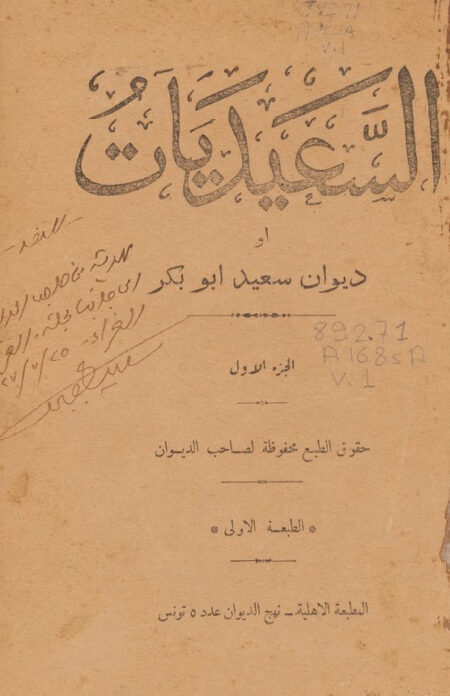 السَّعِيدِيَاتُ
او
ديوان سعيد ابو بكر
892.71
A168sA
V.1
الجزء الاول
حقوق الطبع محفوظة لصاحب الديوان
* الطبعة الاولى *
المطبعة الاهلية ــ نهج الديوان عدد ٥ تونس